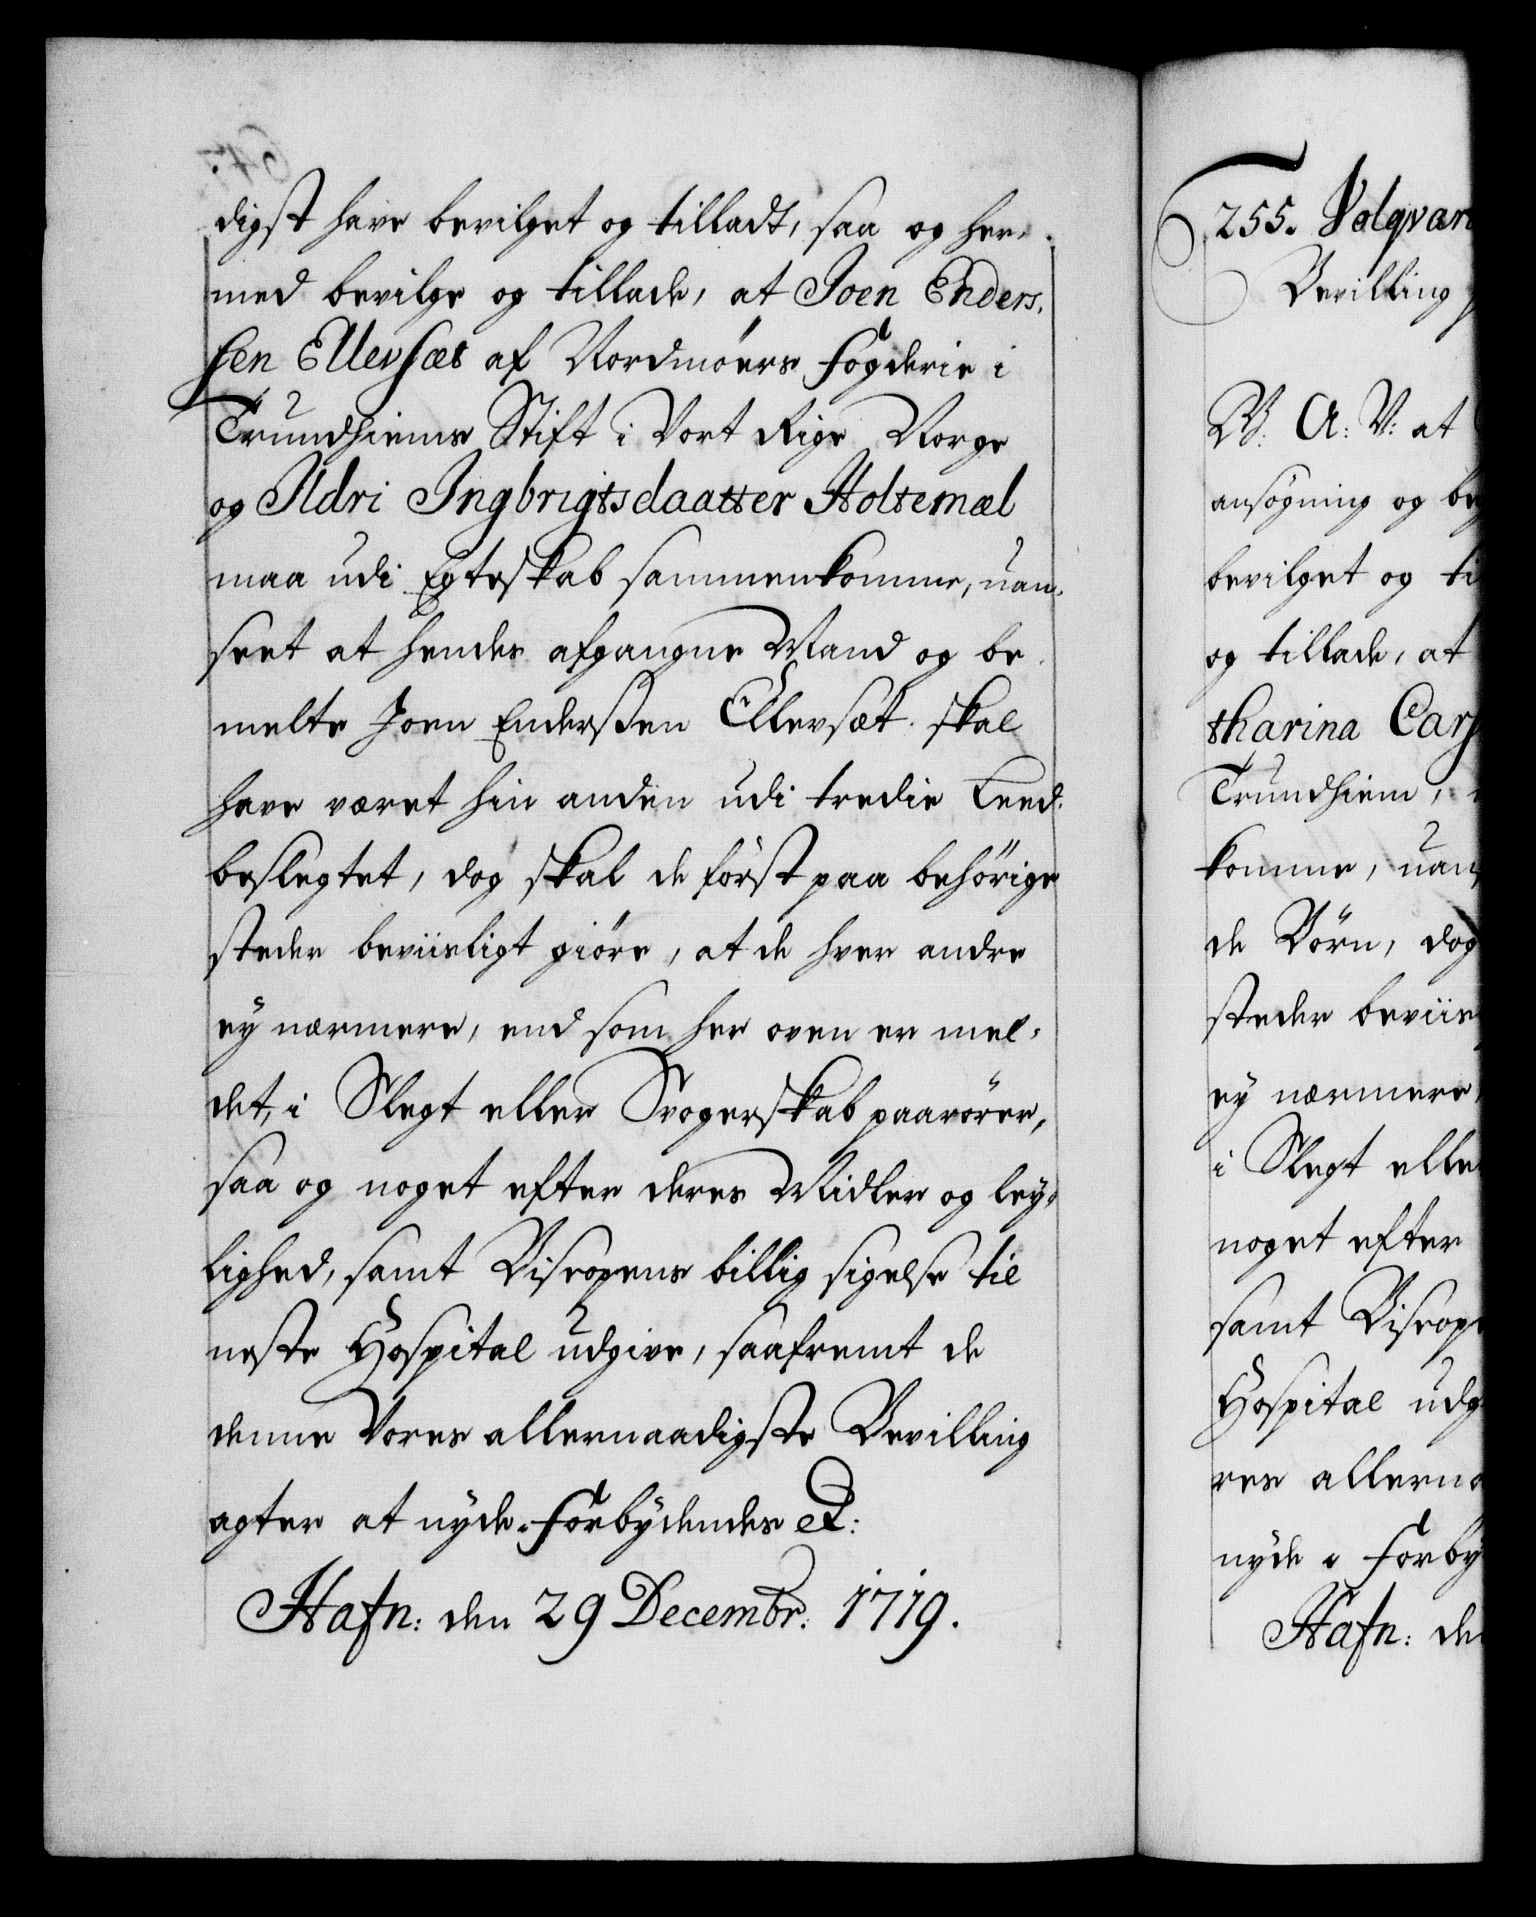 digst have bevilget og tilladt, saa og her-
med bevilge og tillade, at Joen Enders-
sen Ellevsæt af Nordmöers Fögderie i
Trundhiems Stift i Vort Rige Norge
og Ildri Ingbrigtsdaatter Holtemæl
maa udi Egteskab sammenkomme, uan-
seet at hendes afgangne Mand og be-
melte Joen Enderssen Ellevsæt skal
have været hin anden udi tredie Leed
beslegtet, dog skal de först paa behörige
steder beviisligt giöre, at de hver andre
ey nærmere, end som her oven er mel-
det, i Slegt eller Svogerskab paarörer,
saa og noget efter deres Midler og ley-
lighed, samt Biscopens billig sigelse til
neste Hospital udgive, saafremt de
denne Vores allernaadigste Bevilling
agter at nyde. Forbydendes &:
Hafn: den 29 Decembr: 1719.
255. Volqvar
Bevilling
W. A: V: at
ansögning og be
bevilget og ti
og tillade, at
tharina Cars
Trundhiem,
komme, uans
de Börn, dog
steder beviis
ey nærmere,
i Slegt elle
noget efter
samt Biscope
Hospital udg
res allerna
nyde. Forby
Hafn: de